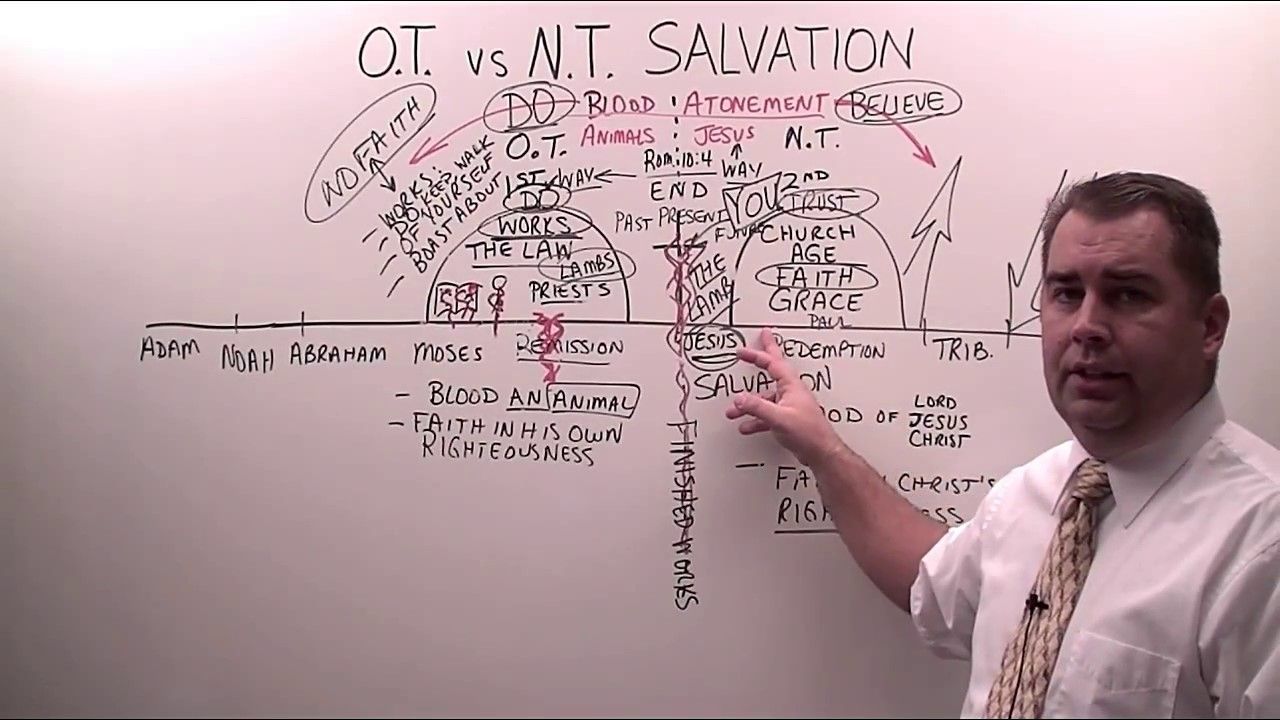 O.T. vs N.T. SALVATION
DO BLOOD : ATONEMENT BELIEVE
O.T. ANIMALS : JESUS N.T.
NO FAITH
- WORKS:
- DO, KEEP, WALK
- OF YOURSELF
- BOAST ABOUT
1ST WAY
Rom: 10:4
WAY
2ND
DO
END
YOU
TRUST
PAST PRESENT FUTURE
WORKS
THE LAW
LAMBS
PRIESTS
THE LAMB
CHURCH
AGE
FAITH
GRACE
PAUL
ADAM NOAH ABRAHAM MOSES REMISSION JESUS REDEMPTION TRIB.
SALVATION
- BLOOD AN ANIMAL
- FAITH IN HIS OWN
RIGHTEOUSNESS
OOD OF LORD
JESUS
CHRIST
- FA CHRIST'S
RIGH SS
FINISHED WORKS